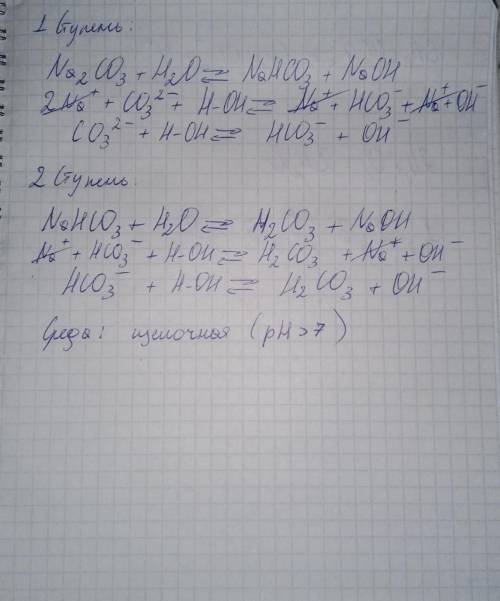 1 Ступень:
Na₂CO₃ + H₂O ⇄ NaHCO₃ + NaOH
2Na⁺ + CO₃²⁻ + H-OH ⇄ Na⁺ + HCO₃⁻ + Na⁺ + OH⁻
CO₃²⁻ + H-OH ⇄ HCO₃⁻ + OH⁻
2 Ступень
NaHCO₃ + H₂O ⇄ H₂CO₃ + NaOH
Na⁺ + HCO₃⁻ + H-OH ⇄ H₂CO₃ + Na⁺ + OH⁻
HCO₃⁻ + H-OH ⇄ H₂CO₃ + OH⁻
Среда: щелочная (pH > 7)